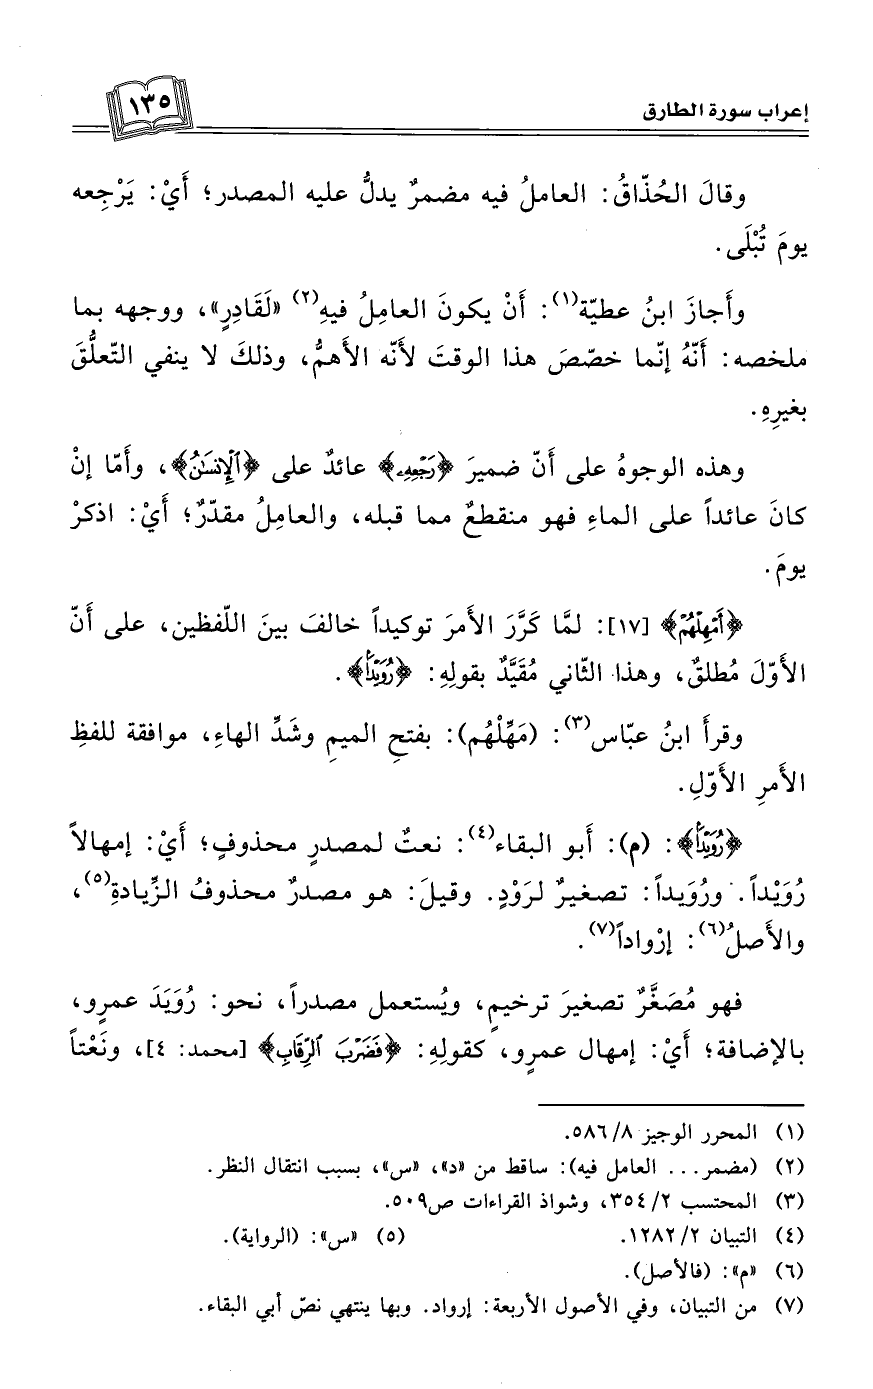 إعراب سورة الطارق
١٣٥
وقالَ الحُذّاقُ: العاملُ فيه مضمرٌ يدلُّ عليه المصدر؛ أيْ: يَرْجِعه
يومَ تُبْلَى.
وأَجازَ ابنُ عطيّة(١): أَنْ يكونَ العامِلُ فيهِ(٢) «لَقَادِرٍ»، ووجهه بما
ملخصه: أَنّهُ إنّما خصّصَ هذا الوقتَ لأنّه الأهمُّ، وذلكَ لا ينفي التّعلُّقَ
بغيرِهِ.
وهذه الوجوهُ على أَنّ ضميرَ ﴿رَجْعِهِۦ﴾ عائدٌ على ﴿ٱلْإِنسَٰنُ﴾، وأَمّا إنْ
كانَ عائداً على الماءِ فهو منقطعٌ مما قبله، والعامِلُ مقدّرٌ؛ أيْ: اذكرْ
يومَ.
﴿أَمْهِلْهُمْ﴾ [١٧]: لمَّا كَرَّرَ الأمرَ توكيداً خالفَ بينَ اللّفظين، على أَنّ
الأَوّلَ مُطلقٌ، وهذا الثّاني مُقَيَّدٌ بقولِهِ: ﴿رُوَيْدًۢا﴾.
وقرأَ ابنُ عبّاس(٣): (مَهِّلْهُم): بفتحِ الميمِ وشَدِّ الهاءِ، موافقة للفظِ
الأمرِ الأَوّلِ.
﴿رُوَيْدًۢا﴾: (م): أَبو البقاء(٤): نعتٌ لمصدرٍ محذوفٍ؛ أيْ: إمهالاً
رُوَيْداً. ورُوَيداً: تصغيرٌ لرَوْدٍ. وقيلَ: هو مصدرٌ محذوفُ الزِّيادةِ(٥)،
والأَصلُ(٦): إرْواداً(٧).
فهو مُصَغَّرٌ تصغيرَ ترخيمٍ، ويُستعمل مصدراً، نحو: رُوَيَدَ عمرٍو،
بالإضافة؛ أيْ: إمهال عمرٍو، كقولِهِ: ﴿فَضَرْبَ ٱلرِّقَابِ﴾ [محمد: ٤]، ونَعْتاً
(١) المحرر الوجيز ٨/ ٥٨٦.
(٢) (مضمر... العامل فيه): ساقط من «د»، «س»، بسبب انتقال النظر.
(٣) المحتسب ٢/ ٣٥٤، وشواذ القراءات ص٥٠٩.
(٤) التبيان ٢/ ١٢٨٢. (٥) «س»: (الرواية).
(٦) «م»: (فالأصل).
(٧) من التبيان، وفي الأصول الأربعة: إرواد. وبها ينتهي نصّ أبي البقاء.